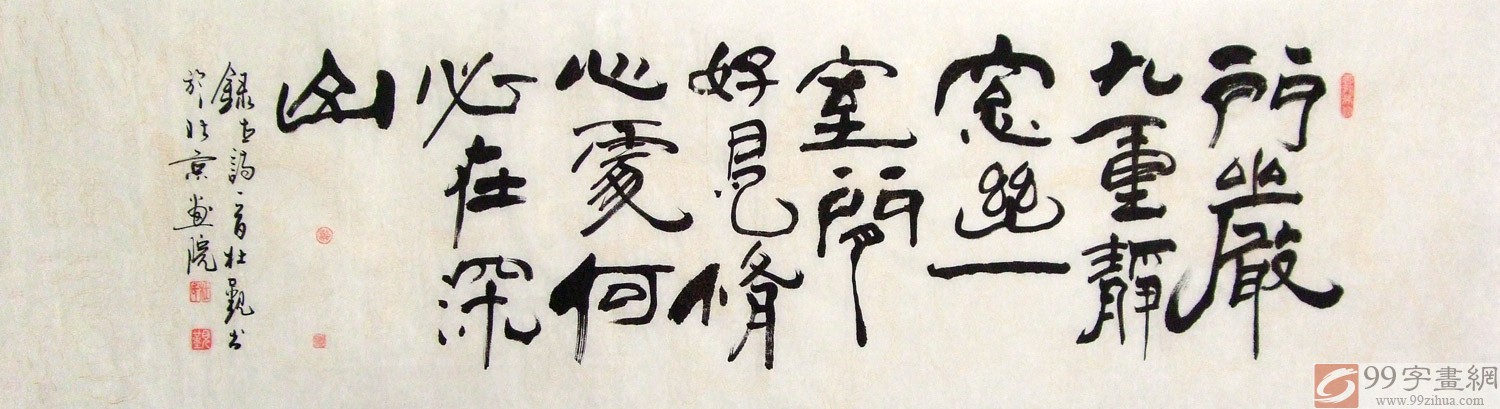 門嚴
九重靜
窓幽一
室閒
好是脩
心處何
必在深
山
錄古詩一首杜觀書
於北京畫院
99字畫網
www.99zihua.com